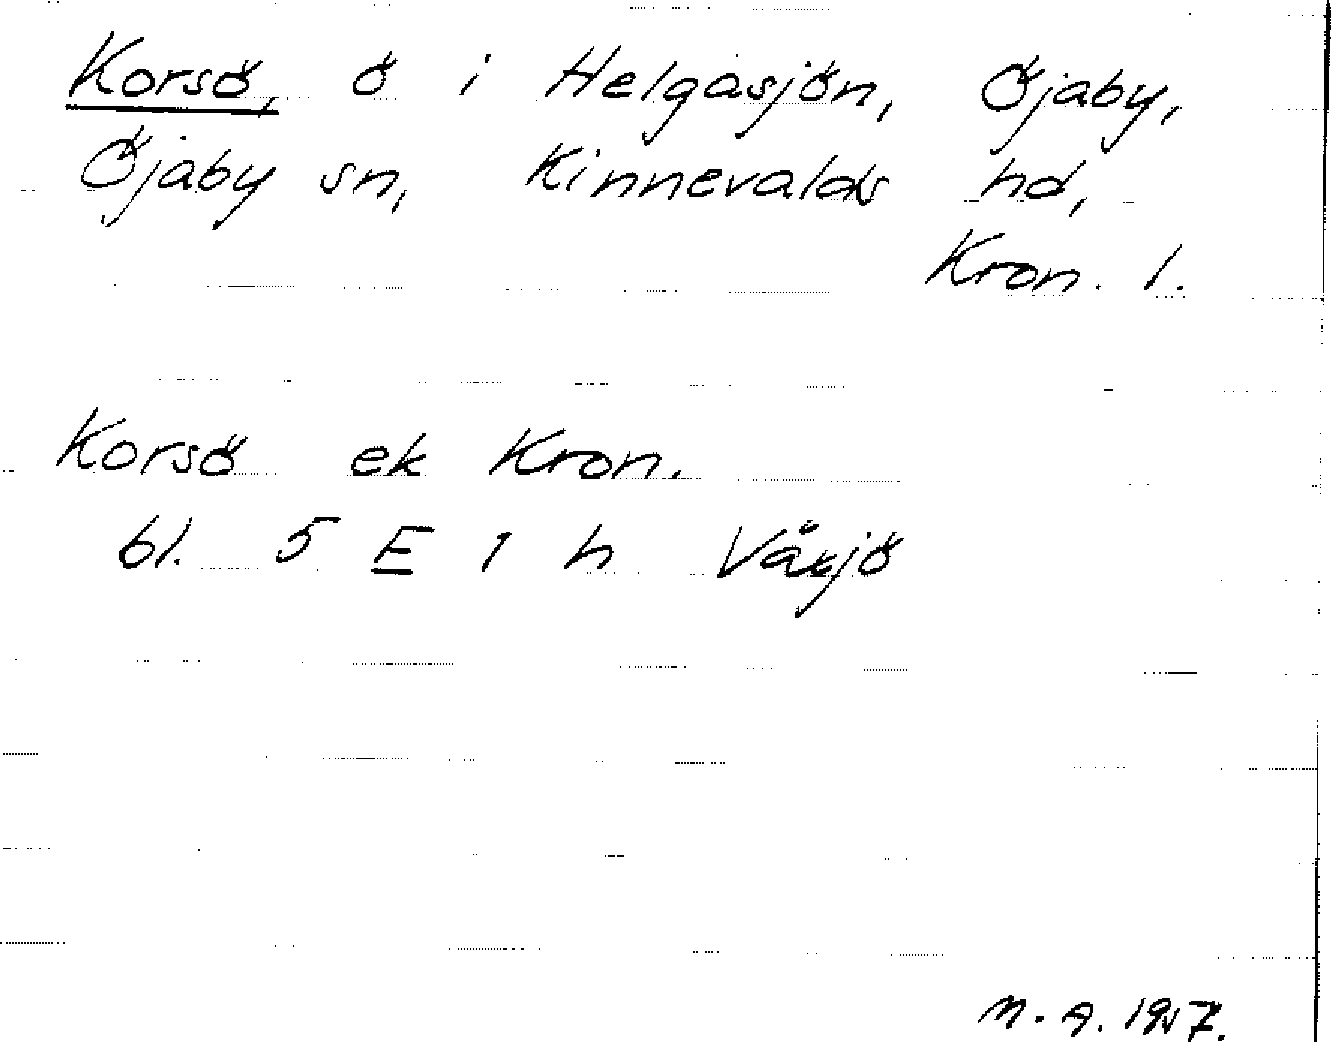 Korsö, ö i Helgasjön, Öjaby,
Öjaby sn, Kinnevalds hd,
Kron. l.
Korsö ek Kron.
bl. 5 E 1 h Växjö
M. A.